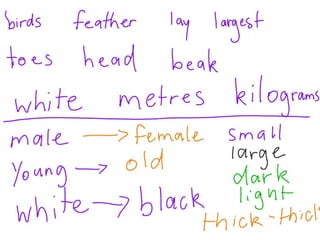 birds feather lay largest
toes head beak
white metres kilograms
male → female small
large
young → old
dark
light
white → black
thick-thick